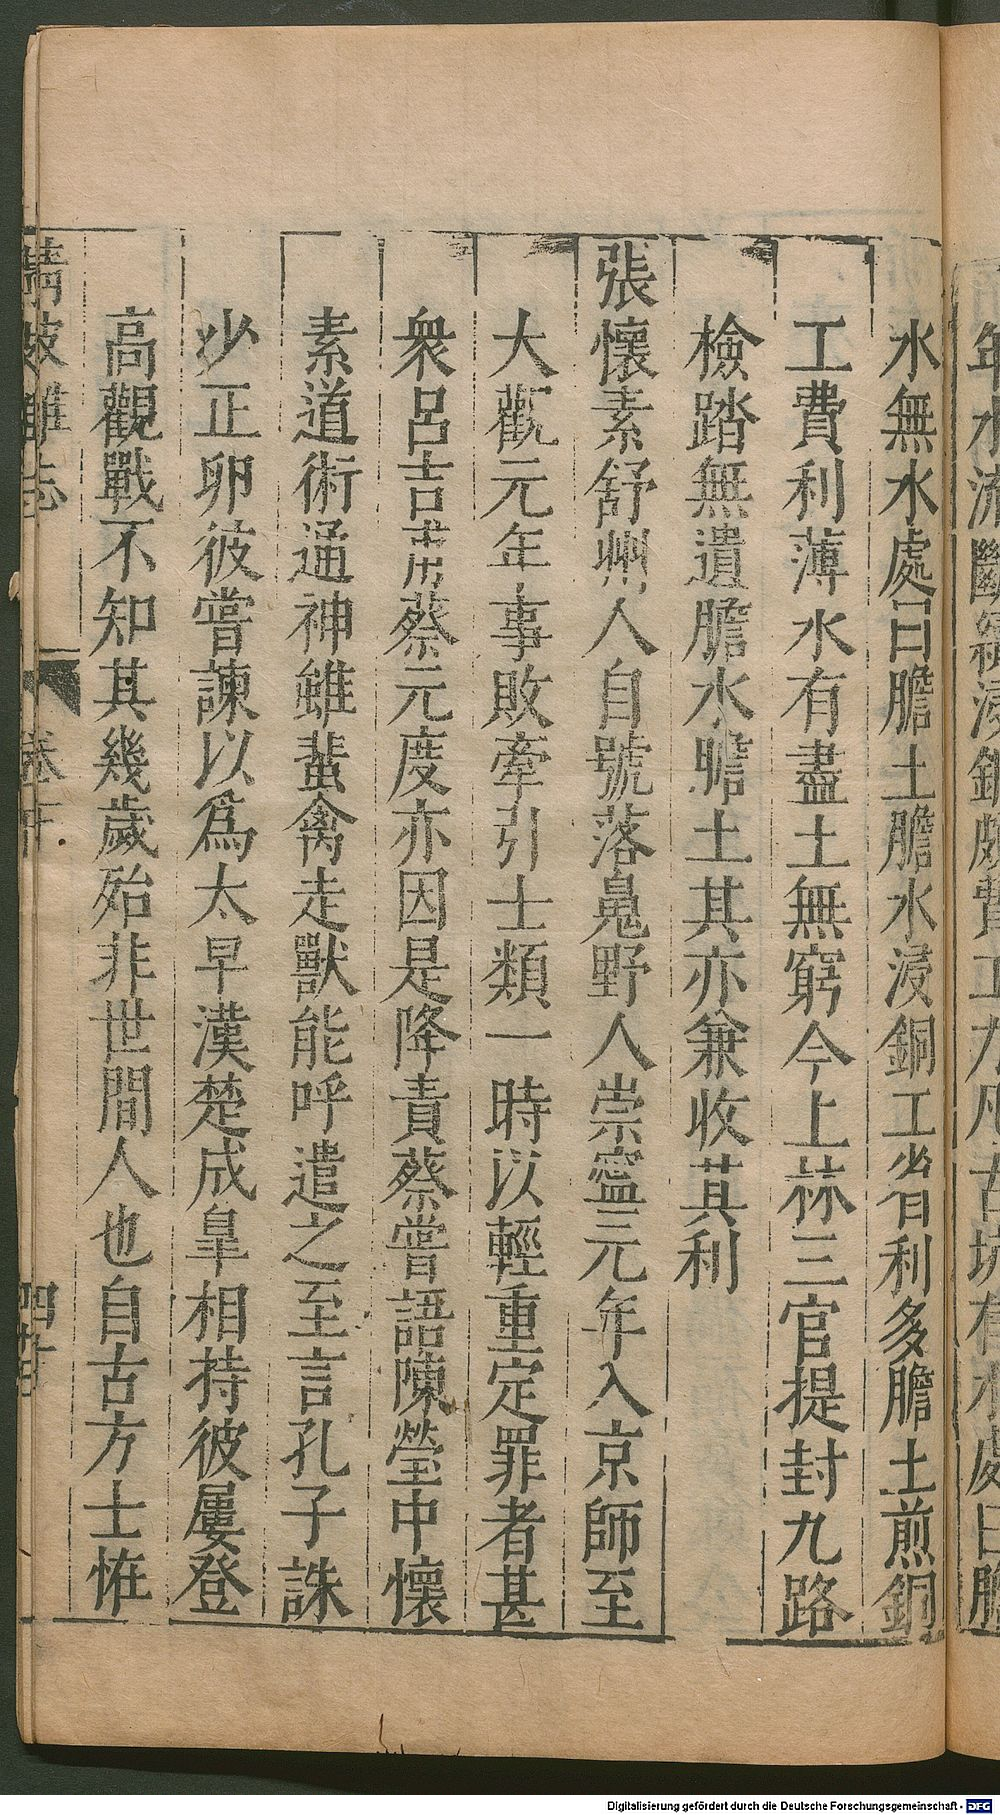 年水流斷續浸銅頗費工力凡古坑有水處曰膽
水無水處曰膽土膽水浸銅工省利多膽土煎銅
工費利薄水有盡土無窮今上林三官提封九路
檢踏無遺膽水膽土其亦兼收其利
張懷素舒州人自號落魄野人崇寧元年入京師至
大觀元年事敗牽引士類一時以輕重定罪者甚
衆呂吉甫蔡元度亦因是降責蔡嘗語陳瑩中懷
素道術通神雖蜚禽走獸能呼遣之至言孔子誅
少正卯彼嘗諫以爲太早漢楚成皐相持彼屢登
高觀戰不知其幾歲殆非世間人也自古方士恠
清波雜志 卷下
Digitalisierung gefördert durch die Deutsche Forschungsgemeinschaft - DFG